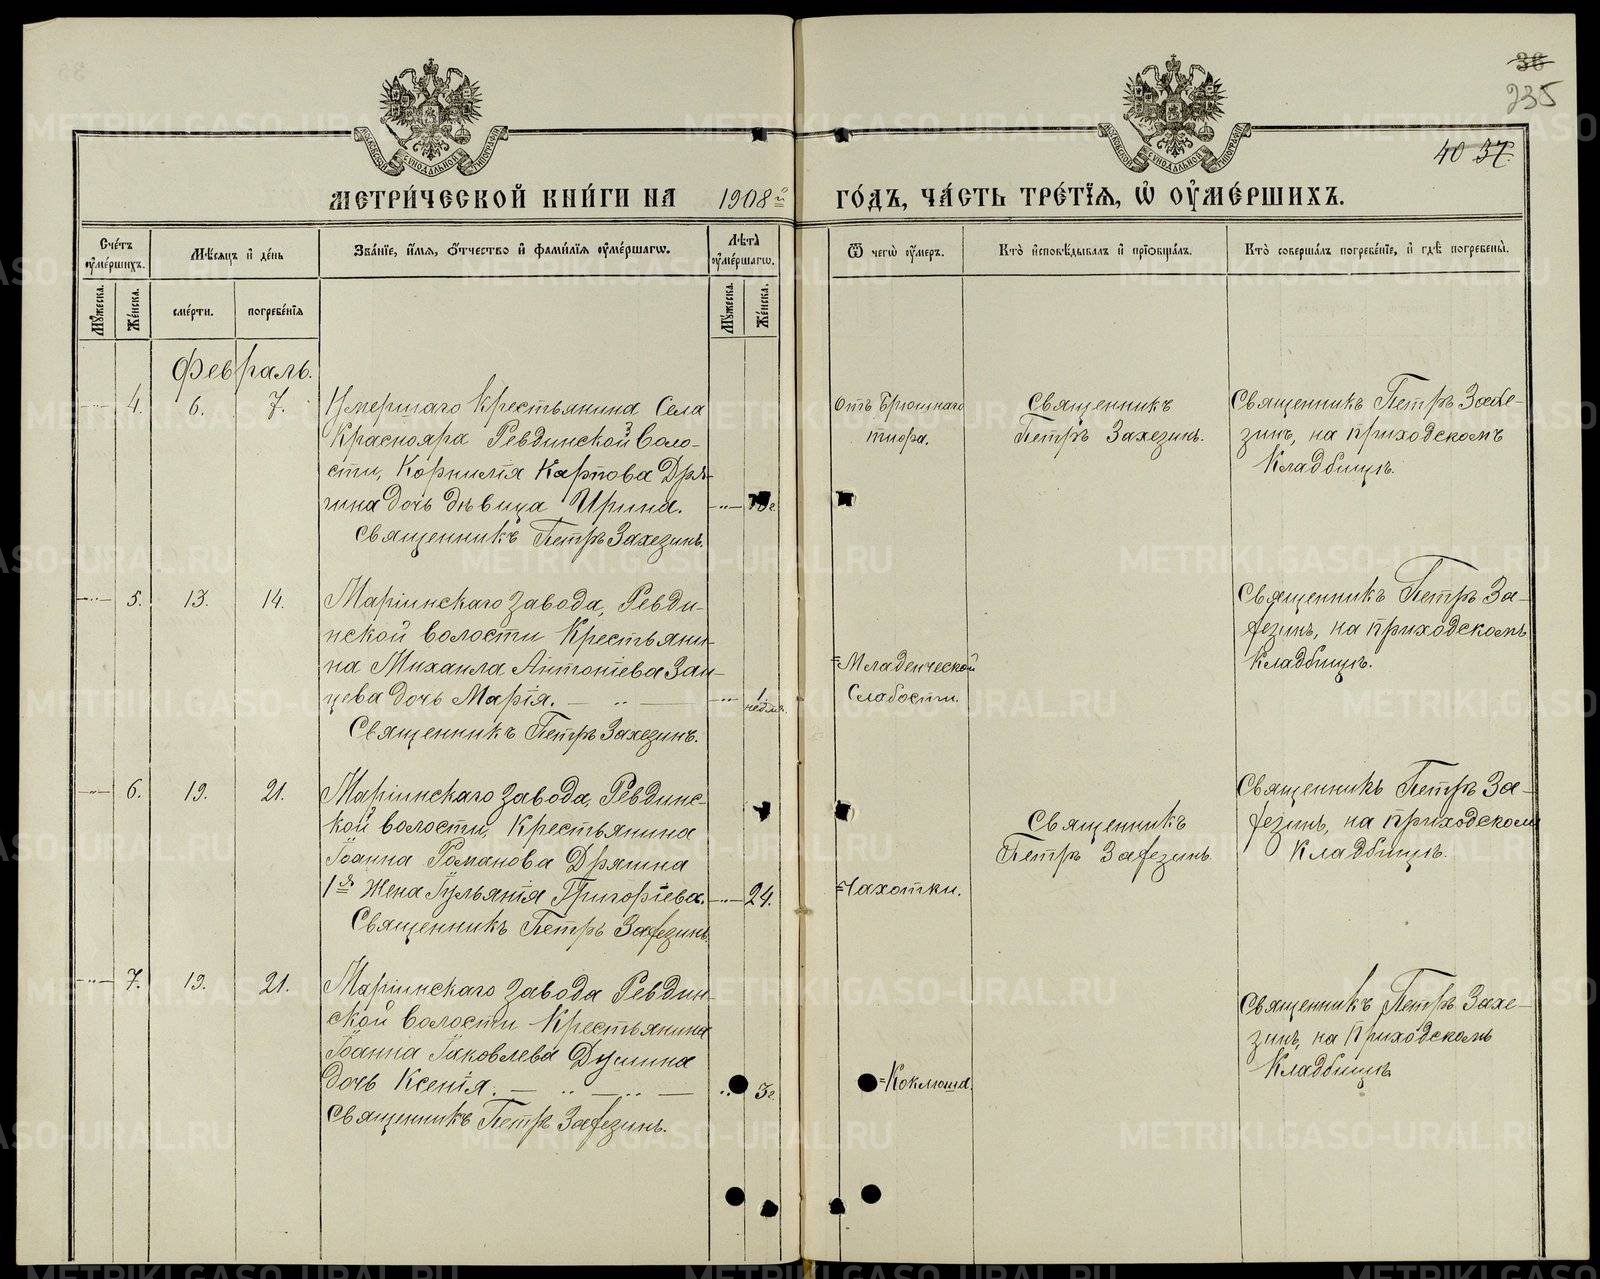 36
235
40 37.
МЕТРИ́ЧЕСКОЙ КНИ́ГИ НА 1908й ГО́ДЪ, ЧА́СТЬ ТРЕ́ТЇѦ, Ѡ҆ ОУ҆МЕ́РШИХЪ.
Сче́тъ оу҆ме́ршихъ.
Мѣ́сѧцъ и҆ де́нь
Зва́нїе, и҆́мѧ, ѻ҆́тчество и҆ фами́лїѧ оу҆ме́ршагѡ.
Лѣ́та оу҆ме́ршагѡ.
Ѿ чегѡ̀ оу҆́меръ.
Кто̀ и҆сповѣ́дывалъ и҆ прїѡбща́лъ.
Кто̀ соверша́лъ погребе́нїе, и҆ гдѣ̀ погребены̀.
Мꙋ́жеска.
Же́нска.
сме́рти.
погребе́нїѧ
Мꙋ́жеска.
Же́нска.
Февраль.
4. 6. 7.
Умершаго Крестьянина Села
Краснояра Ревдинской Воло-
сти, Корнилія Карпова Дря-
гина дочь дѣвица Ирина.
Священникъ Петръ Захезинъ.
Отъ Брюшнаго
тифа.
Священникъ
Петръ Захезинъ.
Священникъ Петръ Захе-
зинъ, на приходскомъ
Кладбищѣ.
5. 13. 14.
Маріинскаго завода, Ревди-
нской волости Крестьяни-
на Михаила Антоніева Зай-
цева дочь Марія.
1. недѣля.
Священникъ Петръ Захезинъ.
Младенческой
Слабости.
Священникъ Петръ За-
хезинъ, на приходскомъ
Кладбищѣ.
6. 19. 21.
Маріинскаго завода, Ревдинс-
кой волости, Крестьянина
Іоанна Романова Дрягина
1я Жена Іульянія Григоріева. 24.
Священникъ Петръ Захезинъ.
Чахотки.
Священникъ
Петръ Захезинъ.
Священникъ Петръ За-
хезинъ, на приходскомъ
Кладбищѣ.
7. 19. 21.
Маріинскаго завода Ревдин-
ской волости Крестьянина
Іоанна Іаковлева
дочь Ксенія. 3г.
Священникъ Петръ Захезинъ.
Коклюша.
Священникъ Петръ Захе-
зинъ, на приходскомъ
Кладбищѣ
METRIKI.GASO-URAL.RU